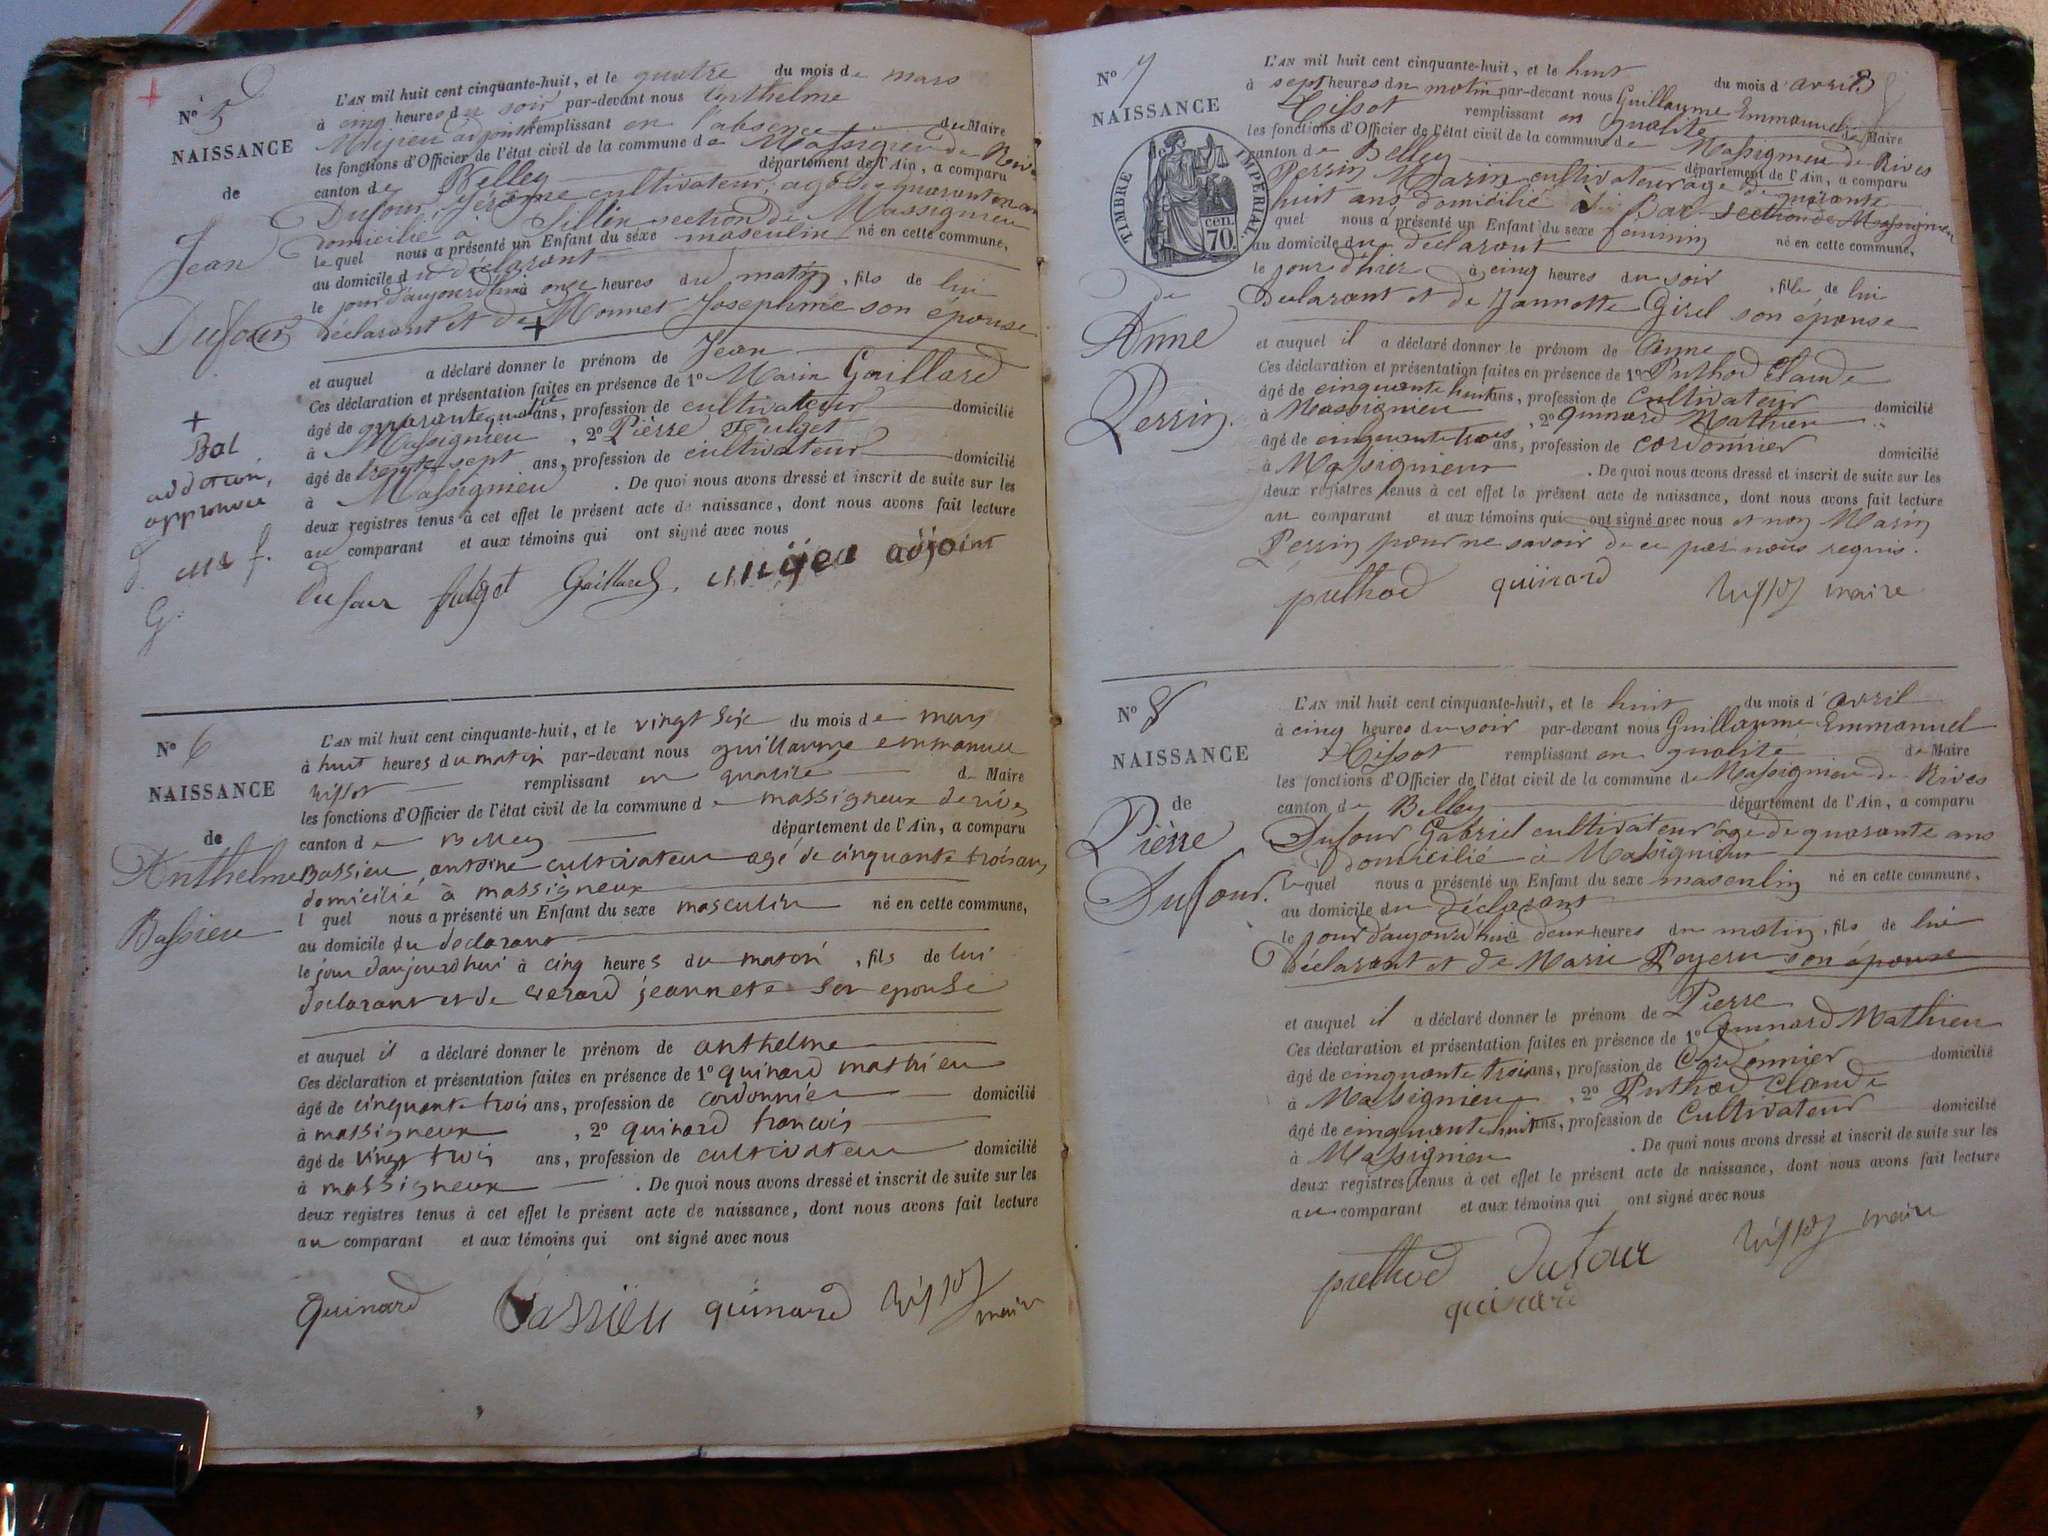 N° 5
NAISSANCE
de
Jean
Dufour
+
Bal
addition
approuvée
L'AN mil huit cent cinquante-huit, et le quatre du mois de mars
à cinq heures du soir par-devant nous Anthelme
Mijeu adjoint remplissant en l'absence du Maire
les fonctions d'Officier de l'état civil de la commune de Massigneu de Rives
canton de Belley département de l'Ain, a comparu
Dufour Jérôme cultivateur, agé de quarante un ans
domicilié à Sillin section de Massignieu
le quel nous a présenté un Enfant du sexe masculin né en cette commune,
au domicile du déclarant
le jour d'aujourd'hui à onze heures du matin, fils de lui
déclarant et de + Monnet Josephine son épouse
et auquel a déclaré donner le prénom de Jean
Ces déclaration et présentation faites en présence de 1° Marin Gaillard
âgé de quarante quatre ans, profession de cultivateur domicilié
à Massignieu, 2° Pierre Fulget
âgé de trente sept ans, profession de cultivateur domicilié
à Massignieu. De quoi nous avons dressé et inscrit de suite sur les
deux registres tenus à cet effet le présent acte de naissance, dont nous avons fait lecture
au comparant et aux témoins qui ont signé avec nous
Dufour fulget Gaillard mijeu adjoint
N° 6
NAISSANCE
de
Anthelme
Bassieu
L'AN mil huit cent cinquante-huit, et le vingt six du mois de mars
à huit heures du matin par-devant nous guillaume emmanuel
tissot remplissant en qualité de Maire
les fonctions d'Officier de l'état civil de la commune de massigneux de rives
canton de Belley département de l'Ain, a comparu
Bassieu antoine cultivateur agé de cinquante trois ans
domicilié à massigneux
l quel nous a présenté un Enfant du sexe masculin né en cette commune,
au domicile du declarant
le jour daujourdhui à cinq heures du matin, fils de lui
declarant et de Gerard jeannete son epouse
et auquel il a déclaré donner le prénom de anthelme
Ces déclaration et présentation faites en présence de 1° quinard mathieu
âgé de cinquante trois ans, profession de cordonnier domicilié
à massigneux, 2° quinard francois
âgé de vingt trois ans, profession de cultivateur domicilié
à massigneux. De quoi nous avons dressé et inscrit de suite sur les
deux registres tenus à cet effet le présent acte de naissance, dont nous avons fait lecture
au comparant et aux témoins qui ont signé avec nous
Quinard Bassieu quinard tissot maire
N° 7
NAISSANCE
TIMBRE IMPÉRIAL
70 cen.
de
Anne
Perrin
L'AN mil huit cent cinquante-huit, et le huit du mois d'avril
à sept heures du matin par-devant nous Guillaume Emmanuel
Tissot remplissant en qualité de Maire
les fonctions d'Officier de l'état civil de la commune de Massigneu de Rives
canton de Belley département de l'Ain, a comparu
Perrin Marin cultivateur age de quarante
huit ans domicilié à Bal section de Massignieu
quel nous a présenté un Enfant du sexe feminin né en cette commune,
au domicile du déclarant
le jour d'hier à cinq heures du soir, fille de lui
Declarant et de Jannette Girel son épouse
et auquel il a déclaré donner le prénom de Anne
Ces déclaration et présentation faites en présence de 1° Puthod Claude
âgé de cinquante huit ans, profession de Cultivateur domicilié
à Massignieu, 2° Quinard Mathieu
âgé de cinquante trois ans, profession de cordonnier domicilié
à Massignieu. De quoi nous avons dressé et inscrit de suite sur les
deux registres tenus à cet effet le présent acte de naissance, dont nous avons fait lecture
au comparant et aux témoins qui ont signé avec nous et non Marin
Perrin pour ne savoir de ce par nous requis.
puthod quinard tissot maire
N° 8
NAISSANCE
de
Pierre
Dufour.
L'AN mil huit cent cinquante-huit, et le huit du mois d'avril
à cinq heures du soir par-devant nous Guillaume Emmanuel
Tissot remplissant en qualité de Maire
les fonctions d'Officier de l'état civil de la commune de Massignieu de Rives
canton de Belley département de l'Ain, a comparu
Dufour Gabriel cultivateur âgé de quarante ans
domicilié à Massignieu
le quel nous a présenté un Enfant du sexe masculin né en cette commune,
au domicile du déclarant
le jour d'aujourd'hui à deux heures du matin, fils de lui
Déclarant et de Marie Poyeru son épouse
et auquel il a déclaré donner le prénom de Pierre
Ces déclaration et présentation faites en présence de 1° Quinard Mathieu
âgé de cinquante trois ans, profession de Cordonnier domicilié
à Massignieu, 2° Puthod Claude
âgé de cinquante huit ans, profession de Cultivateur domicilié
à Massignieu. De quoi nous avons dressé et inscrit de suite sur les
deux registres tenus à cet effet le présent acte de naissance, dont nous avons fait lecture
au comparant et aux témoins qui ont signé avec nous
puthod Dufour tissot maire
quinard